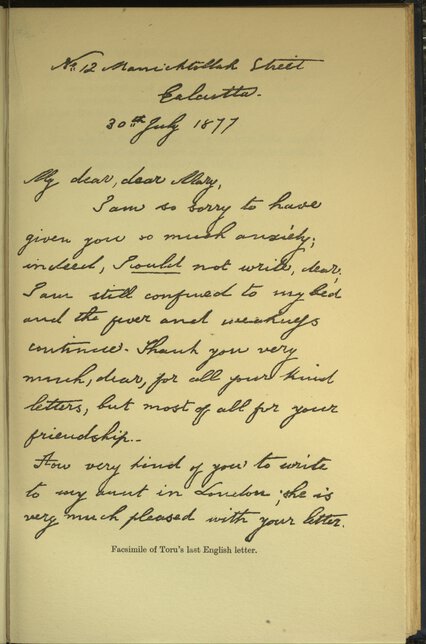 No. 12 Manicktollah Street
Calcutta.
30th July 1877
My dear, dear Mary,
I am so sorry to have
given you so much anxiety;
indeed, I could not write, dear;
I am still confined to my bed
and the fever and weakness
continue. Thank you very
much, dear, for all your kind
letters, but most of all for your
friendship.
How very kind of you to write
to my aunt in London; she is
very much pleased with your letter.
Facsimile of Toru's last English letter.